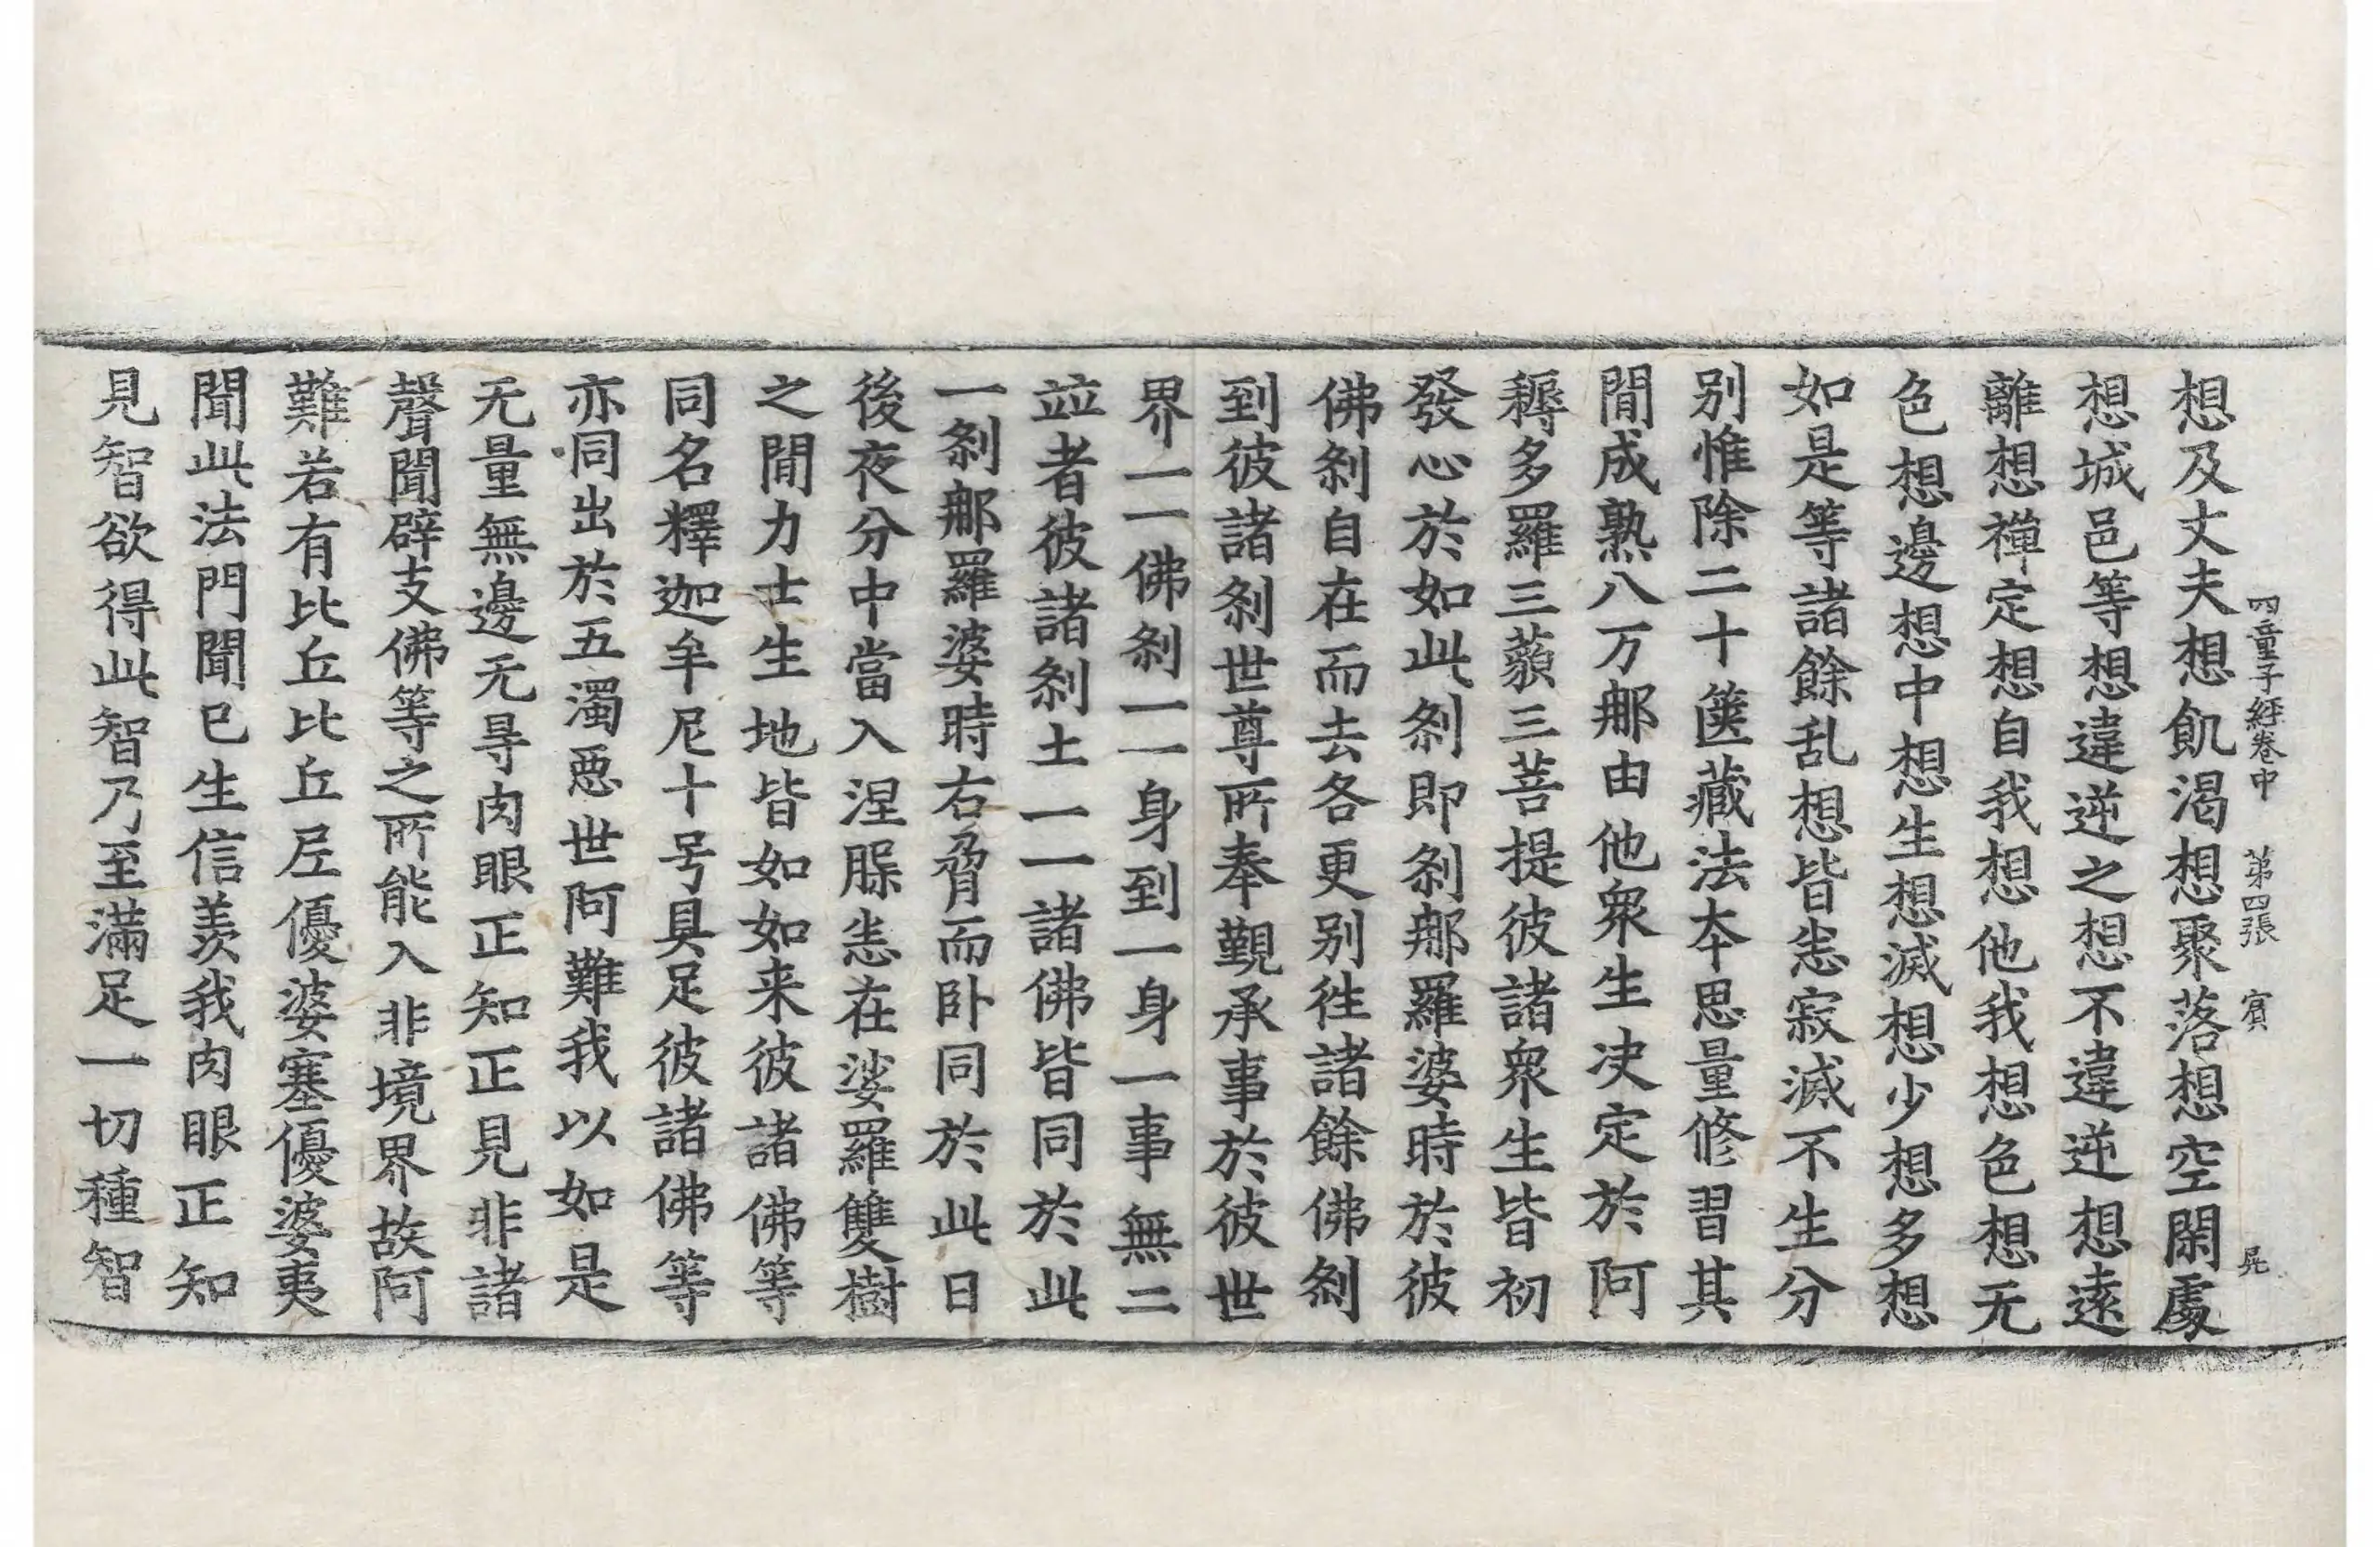 四童子經卷中 第四張 賓
想及丈夫想飢渴想聚落想空閑處
想城邑等想違逆之想不違逆想遠
離想禪定想自我想他我想色想无
色想邊想中想生想滅想少想多想
如是等諸餘乱想皆悉寂滅不生分
别惟除二十篋藏法夲思量修習其
閒成熟八万那由他衆生决定於阿
耨多羅三藐三菩提彼諸衆生皆初
發心於如此刹即刹那羅婆時於彼
佛刹自在而去各更别徃諸餘佛刹
到彼諸刹世尊所奉覲承事於彼世
界一一佛刹一一身到一身一事無二
竝者彼諸刹土一一諸佛皆同於此
一刹那羅婆時右脅而卧同於此日
後夜分中當入涅槃悉在娑羅雙樹
之閒力士生地皆如如来彼諸佛等
同名釋迦牟尼十号具足彼諸佛等
亦同出於五濁惡世阿難我以如是
无量無邊无㝵肉眼正知正見非諸
聲聞辟支佛等之所能入非境界故阿
難若有比丘比丘尼優婆塞優婆夷
聞此法門聞已生信羨我肉眼正知
見智欲得此智乃至滿足一切種智